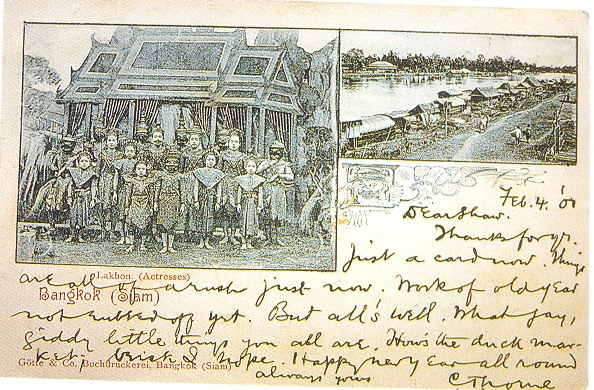 Feb. 4. '01
Dear Shaw.
Thanks for yr.
Just a card now. Things
Lakhon. (Actresses)
are all of a rush just now. Work of old year
Bangkok (Siam)
not rubbed off yet. But all's well. What gay,
giddy little things you all are. How's the duck mar-
ket; brisk I hope. Happy New Year all round
Götte & Co. Buchdruckerei, Bangkok (Siam)
always yours
C Thorne